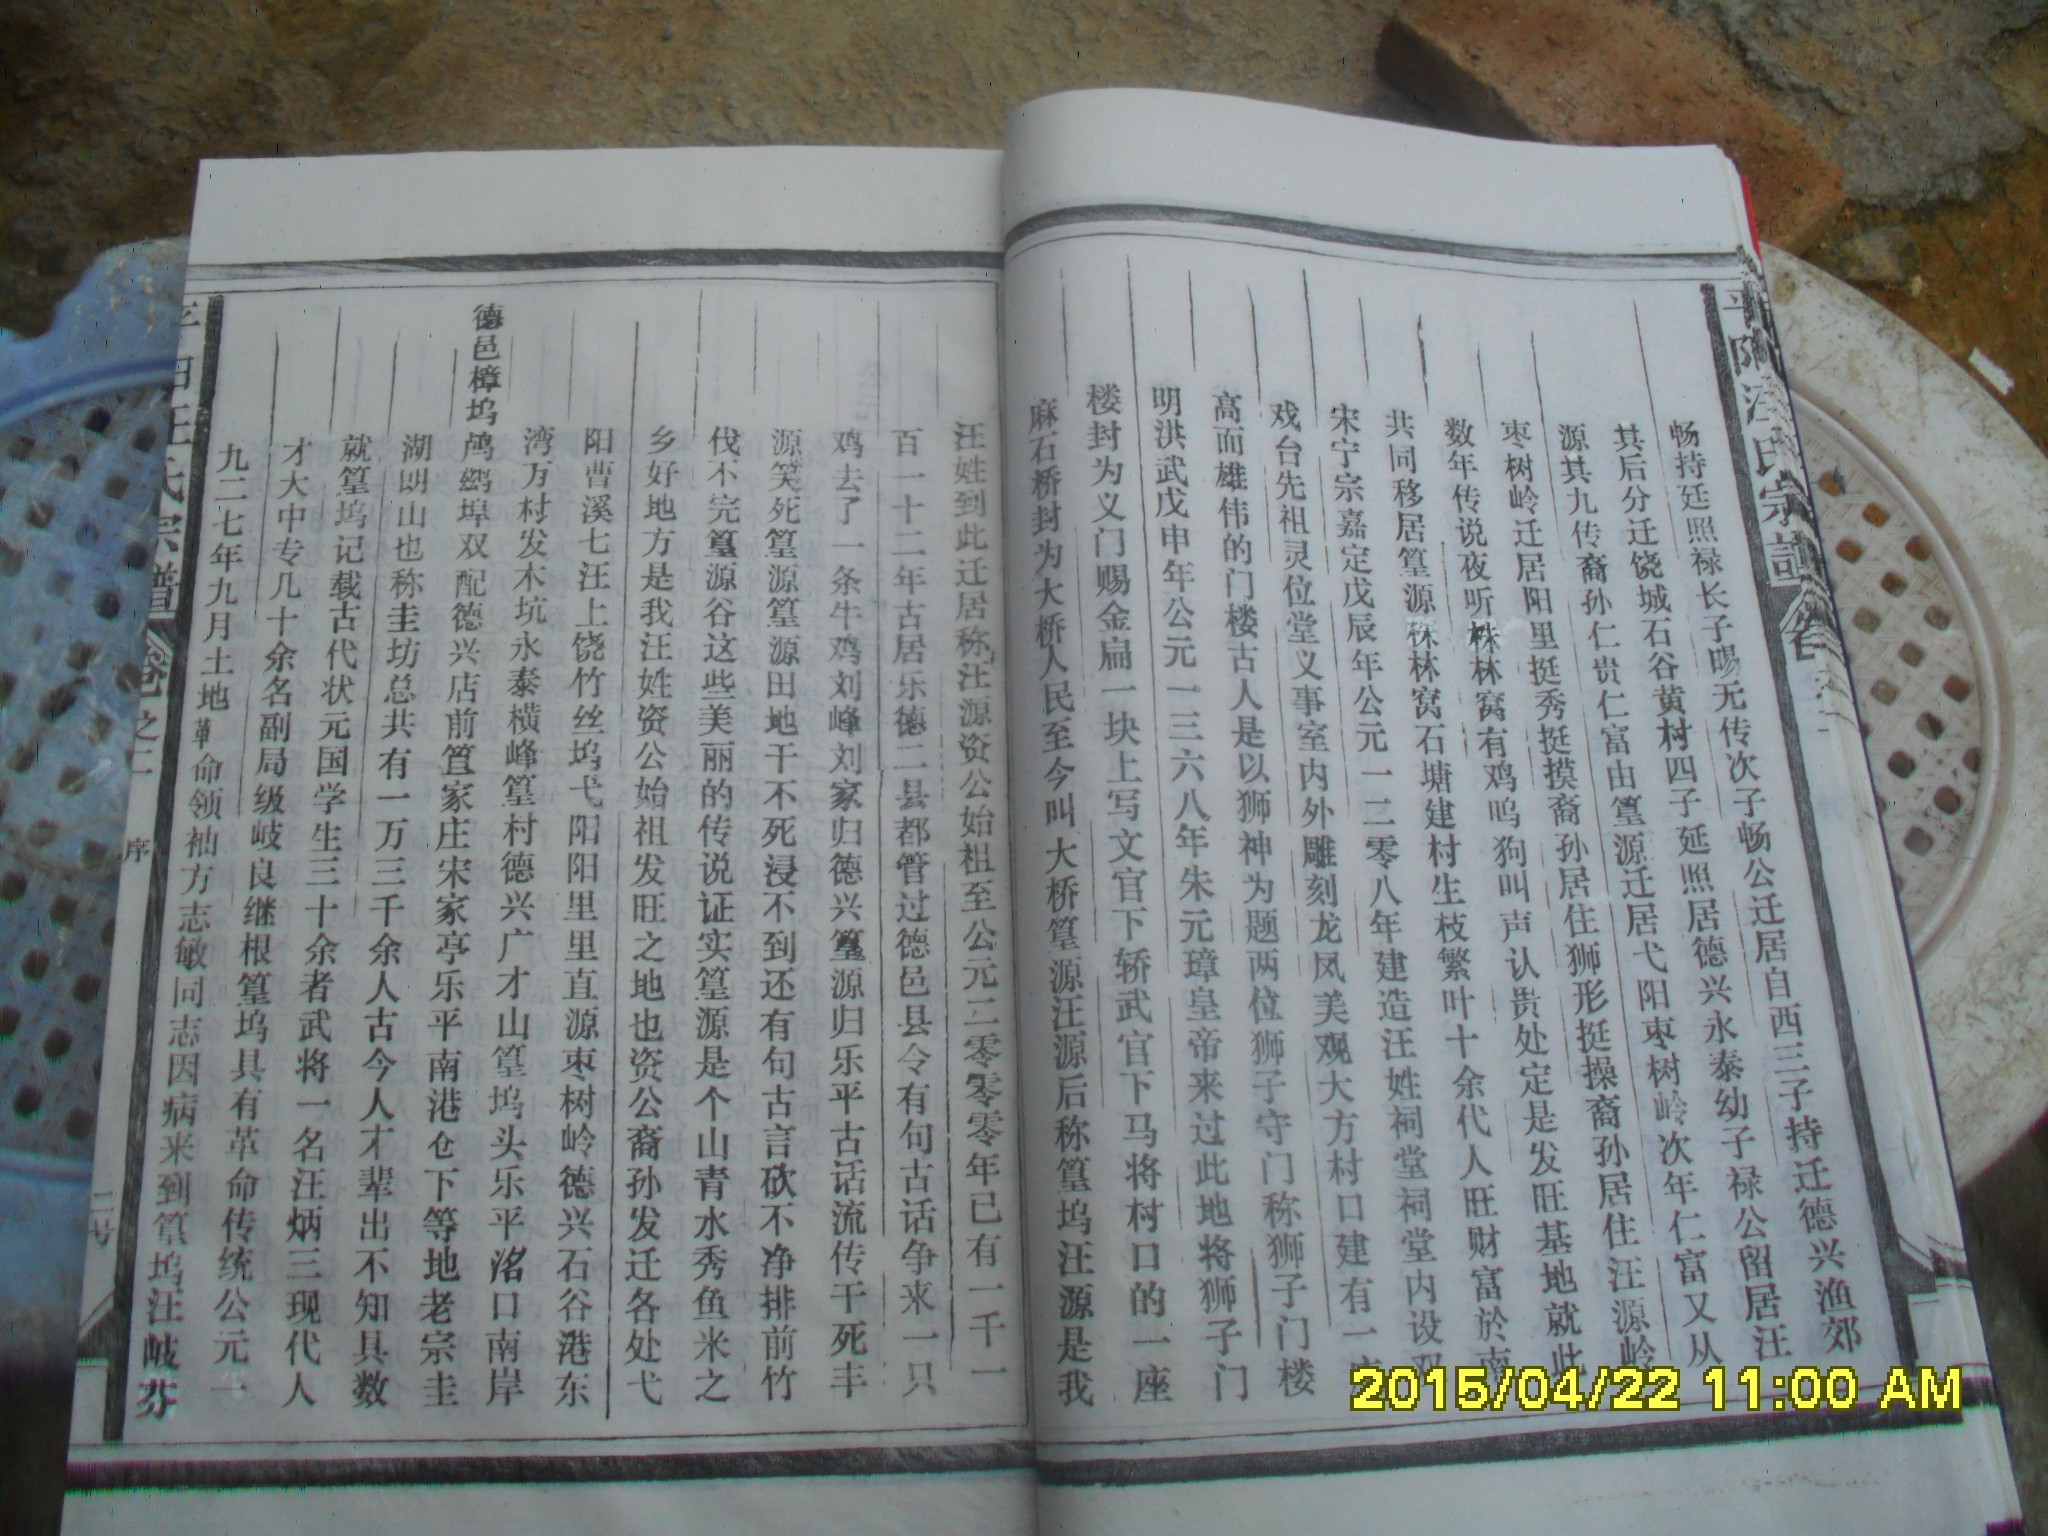 平阳汪氏宗谱
畅持廷照禄长子赐无传次子畅公迁居自西三子持迁德兴渔郊
其后分迁饶城石谷黄村四子延照居德兴永泰幼子禄公留居汪
源其九传裔孙仁贵仁富由篁源迁居弋阳枣树岭次年仁富又从
枣树岭迁居阳里挺秀挺摸裔孙居住狮形挺操裔孙居住汪源岭
数年传说夜听株林窝有鸡鸣狗叫声认贵处定是发旺基地就此
共同移居篁源株林窝石塘建村生枝繁叶十余代人旺财富於南
宋宁宗嘉定戊辰年公元一二零八年建造汪姓祠堂祠堂内设双
戏台先祖灵位堂义事室内外雕刻龙凤美观大方村口建有一
高而雄伟的门楼古人是以狮神为题两位狮子守门称狮子门楼
明洪武戊申年公元一三六八年朱元璋皇帝来过此地将狮子门
楼封为义门赐金扁一块上写文官下轿武官下马将村口的一座
麻石桥封为大桥人民至今叫大桥篁源汪源后称篁坞汪源是我
汪姓到此迁居称汪源资公始祖至公元二零零零年已有一千一
百一十二年古居乐德二县都管过德邑县令有句古话争来一只
鸡去了一条牛鸡刘峰刘家归德兴篁源归乐平古话流传干死丰
源笑死篁源篁源田地干不死浸不到还有句古言砍不净排前竹
伐不完篁源谷这些美丽的传说证实篁源是个山青水秀鱼米之
乡好地方是我汪姓资公始祖发旺之地也资公裔孙发迁各处弋
阳曹溪七汪上饶竹丝坞弋阳阳里里直源枣树岭德兴石谷港东
湾万村发木坑永泰横峰篁村德兴广才山篁坞头乐平洺口南岸
德邑樟坞鸬鹚埠双配德兴店前笪家庄宋家亭乐平南港仓下等地老宗圭
湖明山也称圭坊总共有一万三千余人古今人才辈出不知具数
就篁坞记载古代状元国学生三十余者武将一名汪炳三现代人
才大中专几十余名副局级岐良继根篁坞具有革命传统公元一
九二七年九月土地革命领袖方志敏同志因病来到篁坞汪岐芬
平阳汪氏宗谱 卷之二 序 二号
2015/04/22 11:00 AM